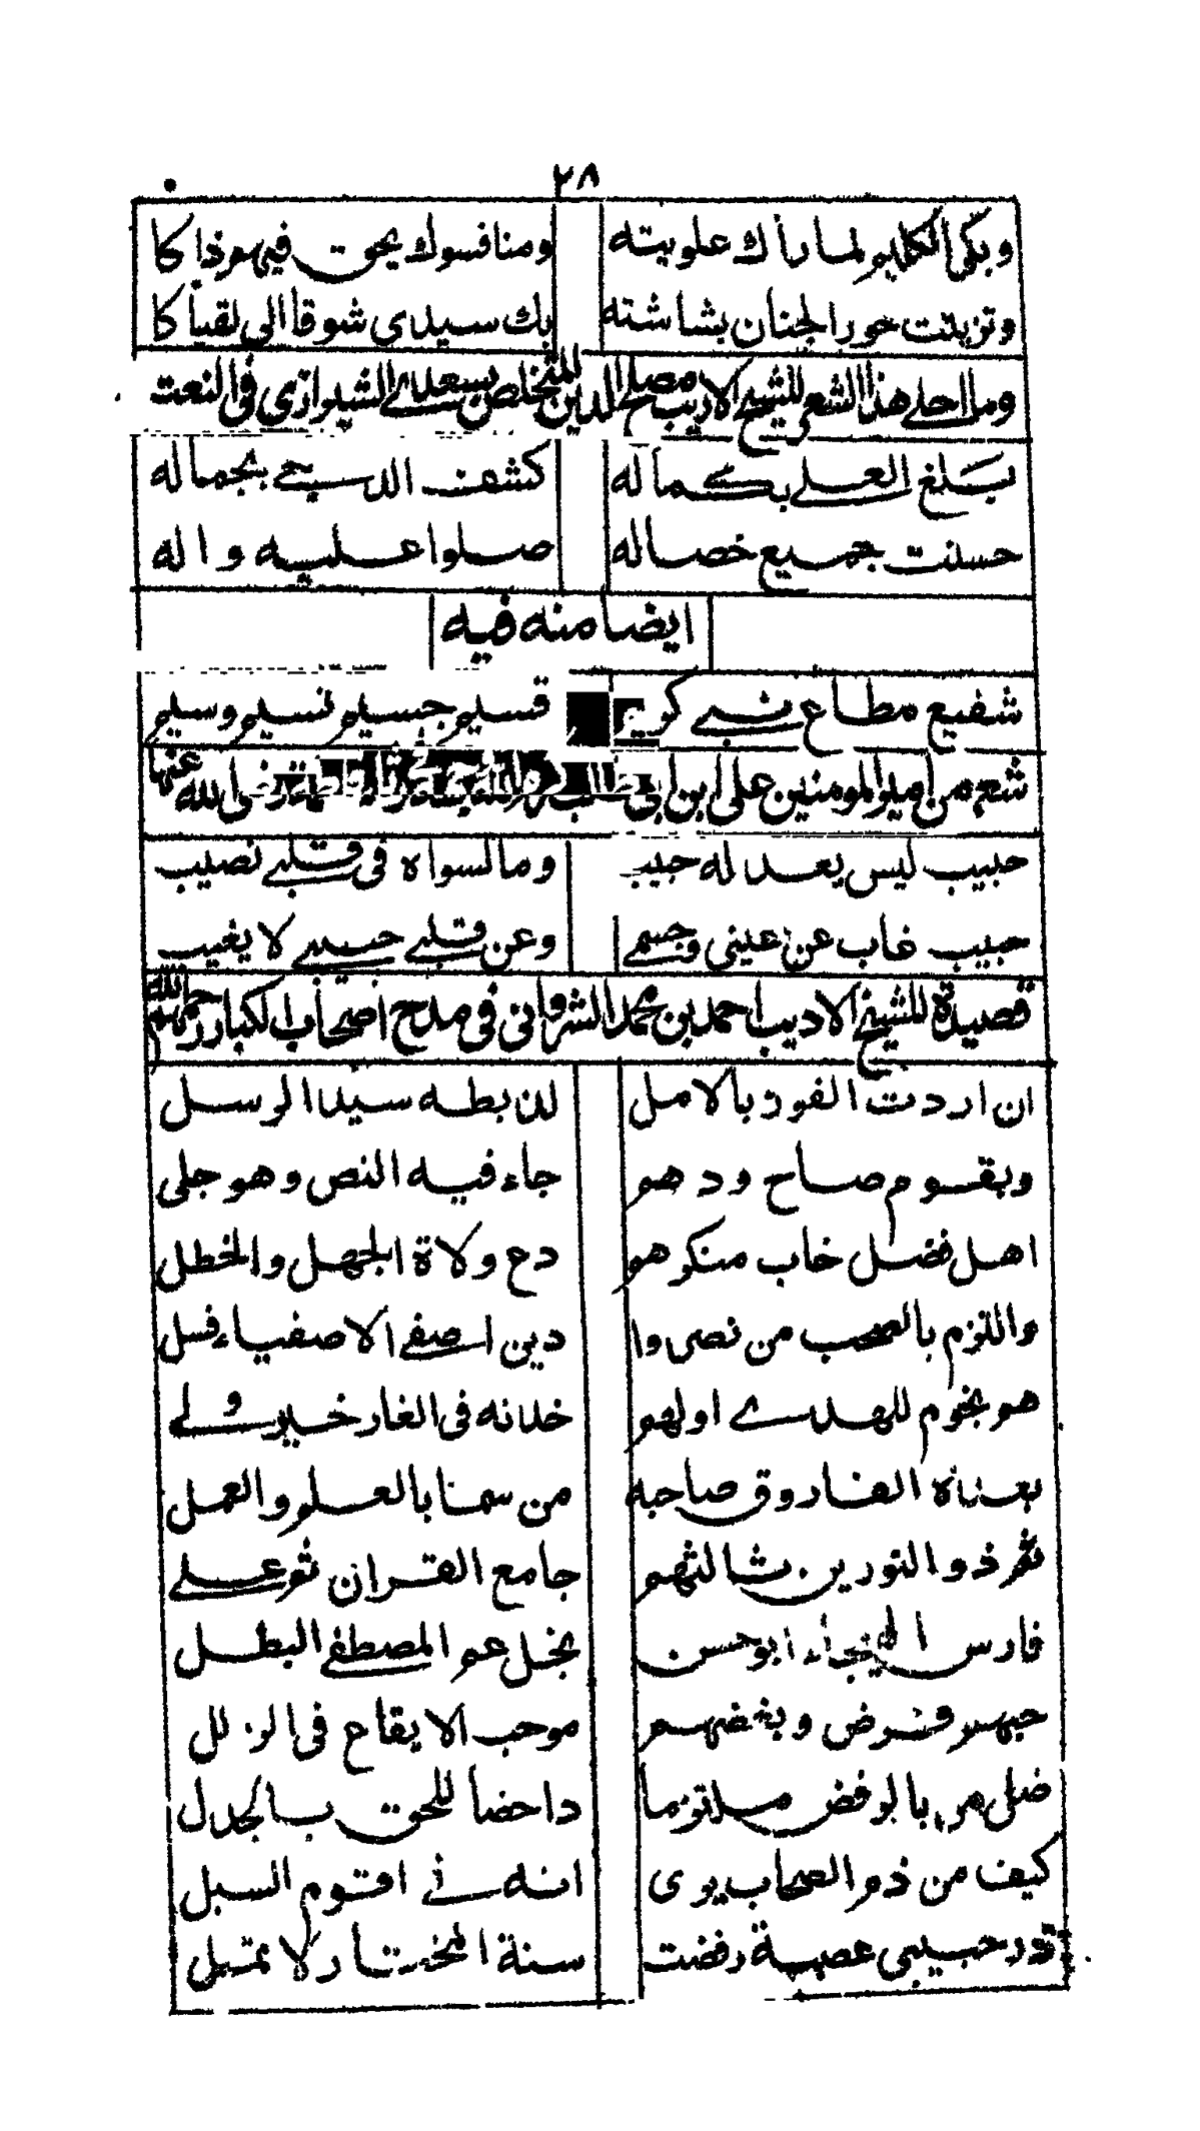 ٢٨
وبكى الكليم لما رأك علوبيته ومنافسوك يحق فيهم ذا كا
وتزينت حور الجنان بشاشته بك سيدي شوقا الى لقيا كا
وما احلى هذا الشعر للشيخ الاديب مصلح الدين المتخلص بسعدي الشيرازي في النعت
بلغ العلى بكماله كشف الدجى بجماله
حسنت جميع خصاله صلوا عليه واله
ايضا منه فيه
شفيع مطاع نبي كريم قسيم جسيم نسيم وسيم
شعر من امير المومنين على ابن ابى طالب رضى الله عنها
حبيب ليس يعدله حبيب وما لسواه فى قلبي نصيب
حبيب غاب عن عينى وجسمي وعن قلبي حبيبي لا يغيب
قصيدة للشيخ الاديب احمد بن محمد الشروانى فى مدح اصحاب الكبار رحمهم الله
ان اردت الفوز بالامل لذ بطه سيد الرسل
وبقوم صاح ودهم جاء فيه النص وهو جلى
اهل فضل خاب منكرهم دع ولاة الجهل والخطل
والتزم بالصحب من نصروا دين اصفى الاصفياء فسل
هم نجوم للهدى اولهم خدانه فى الغار خير ولي
بعداه الفاروق صاحبه من سما بالعلم والعمل
ثم ذو النورين ثالثهم جامع القران ثم علي
فارس الهيجاء ابو حسن نجل عم المصطفى البطل
حبهم فرض وبغضهم موجب الايقاع فى الزلل
ضل من بالرفض ملتزما داحضا للحق بالجدل
كيف من ذم الصحاب يرى انه في اقوم السبل
حبيبى عصبة رفضت سنة المختار لا تمل